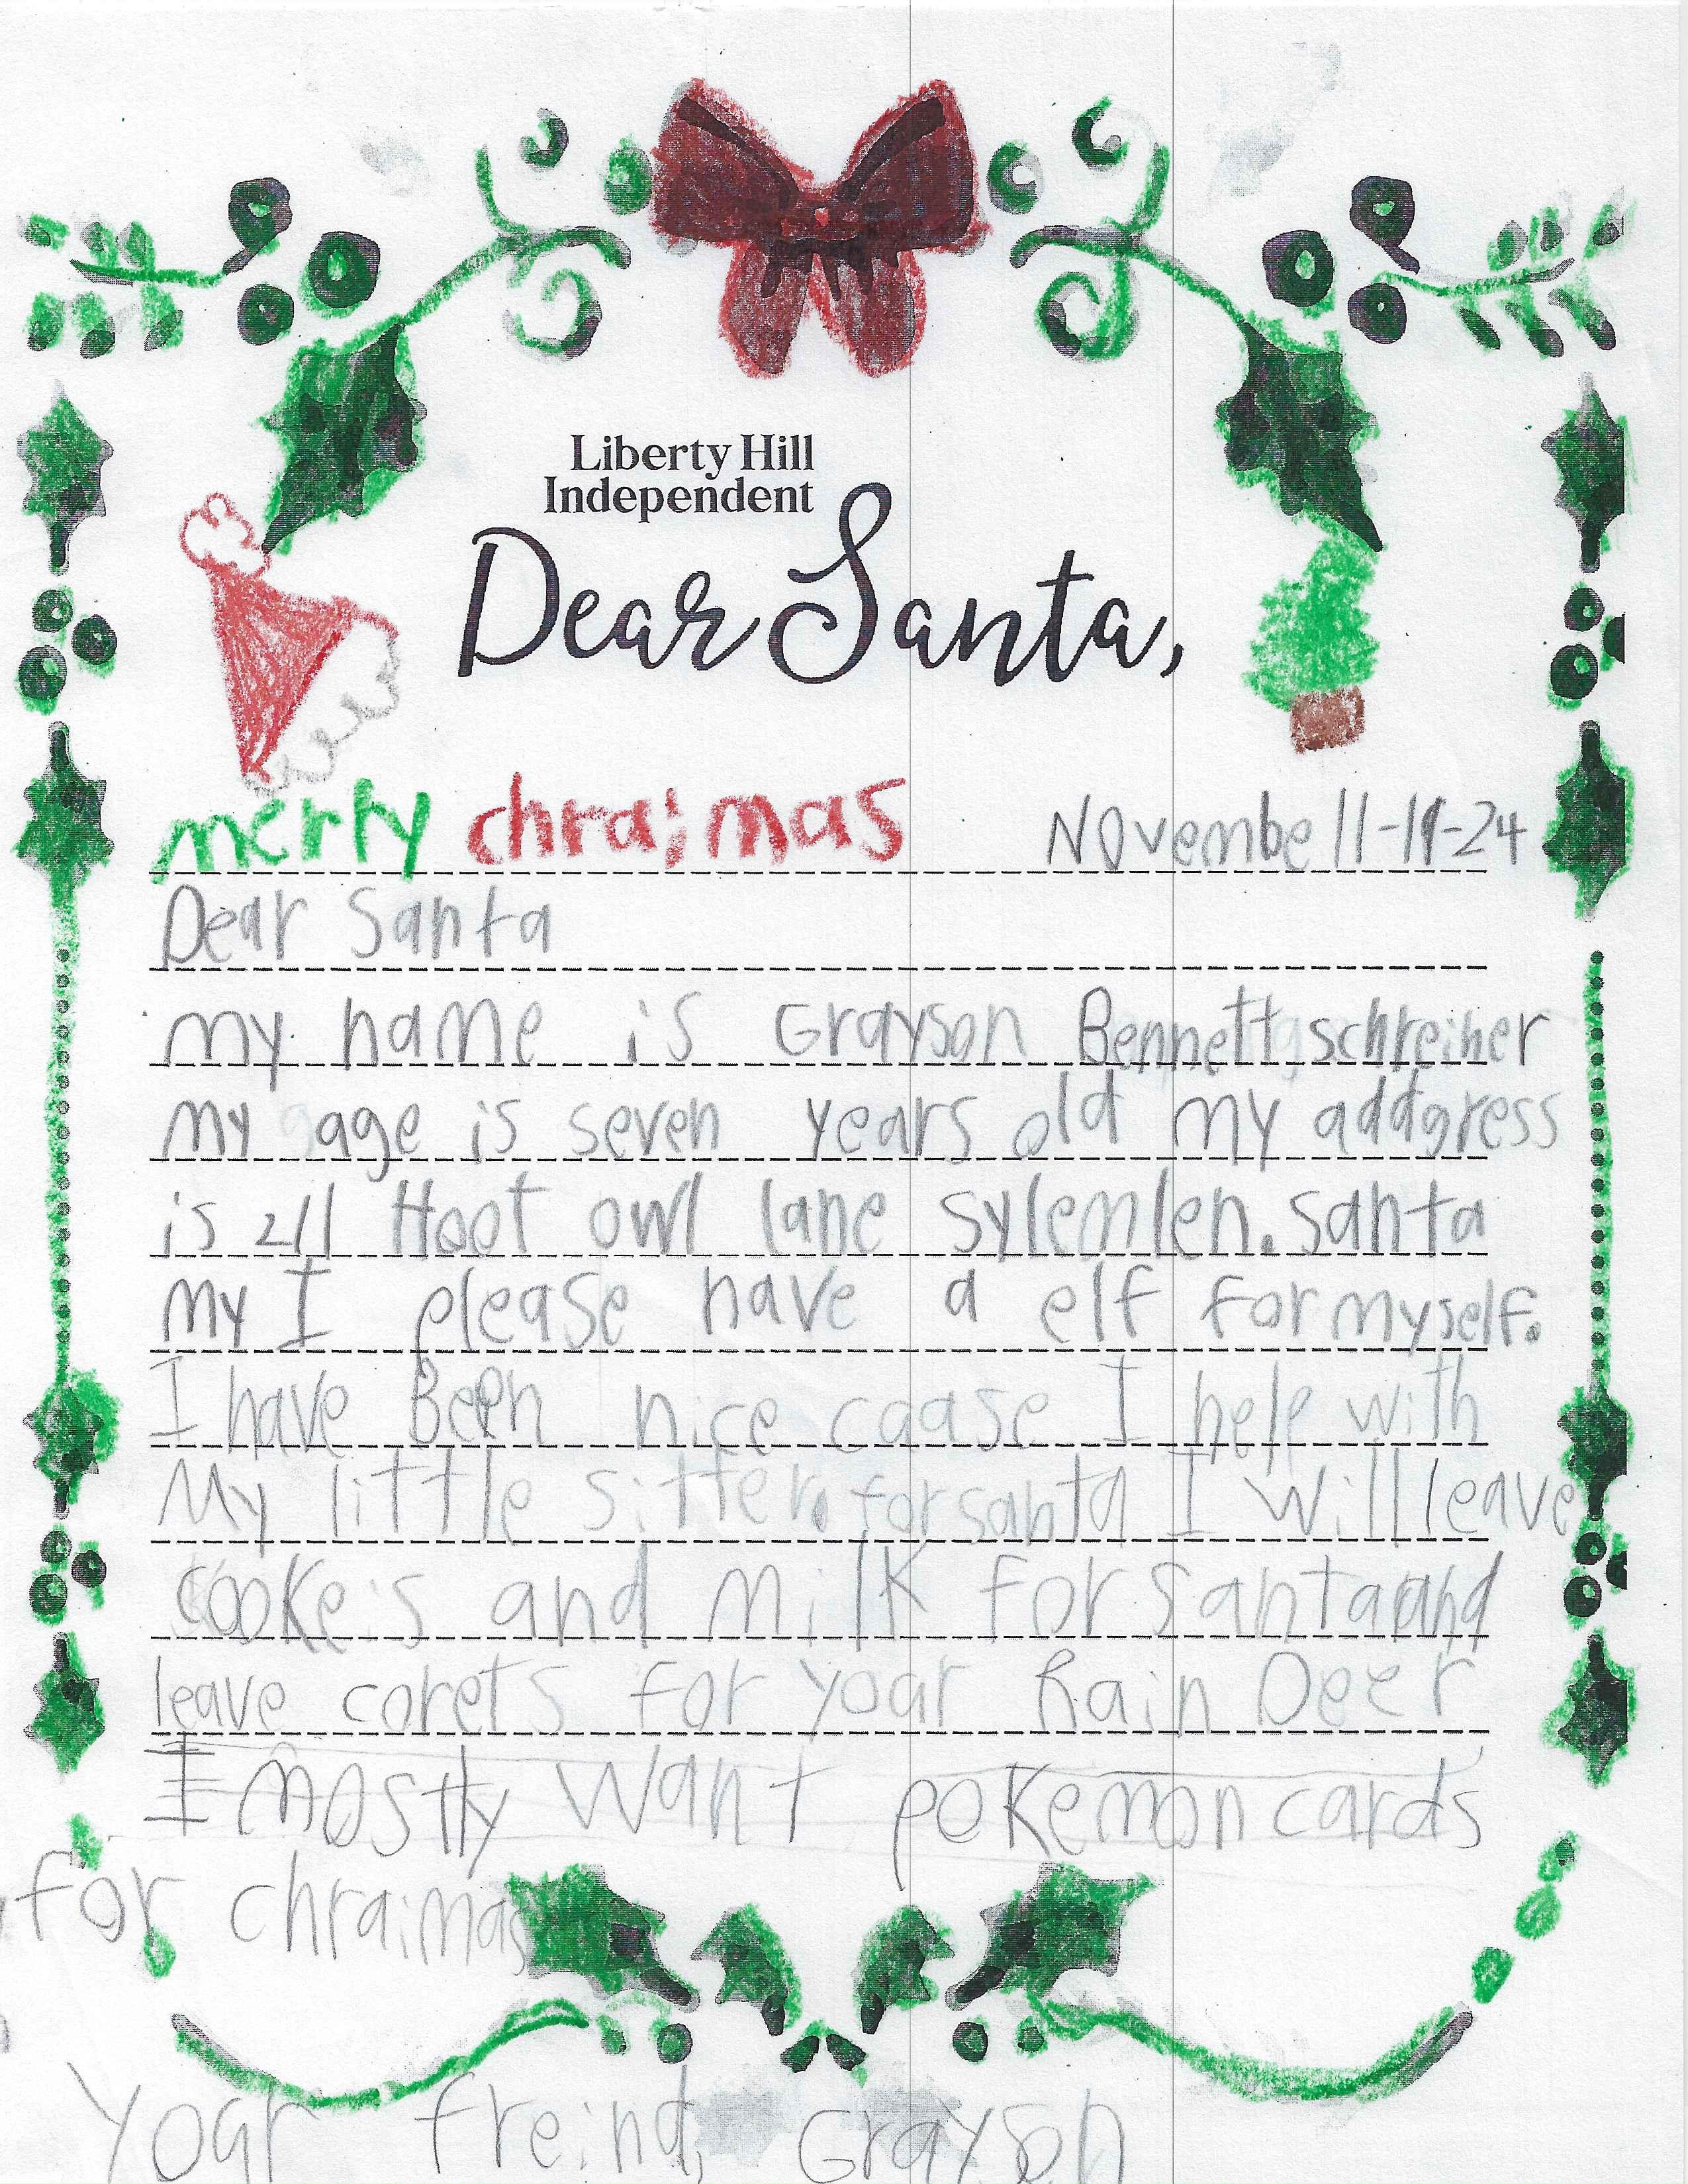 Liberty Hill
Independent
Dear Santa,
merry chraimas Novembe 11-19-24
Dear Santa
my name is Grayson Bennett schreiner
my age is seven years old my addgress
is 211 Hoot owl lane sylemlen. santa
my I please have a elf for myself.
I have Been nice caase I help with
My little sitter. for santa I will leave
cookeis and milk for Santa and
leave corets for yoar Rain Deer
I mostly want pokemon cards
for chraimas
Yoar freind, Grayson